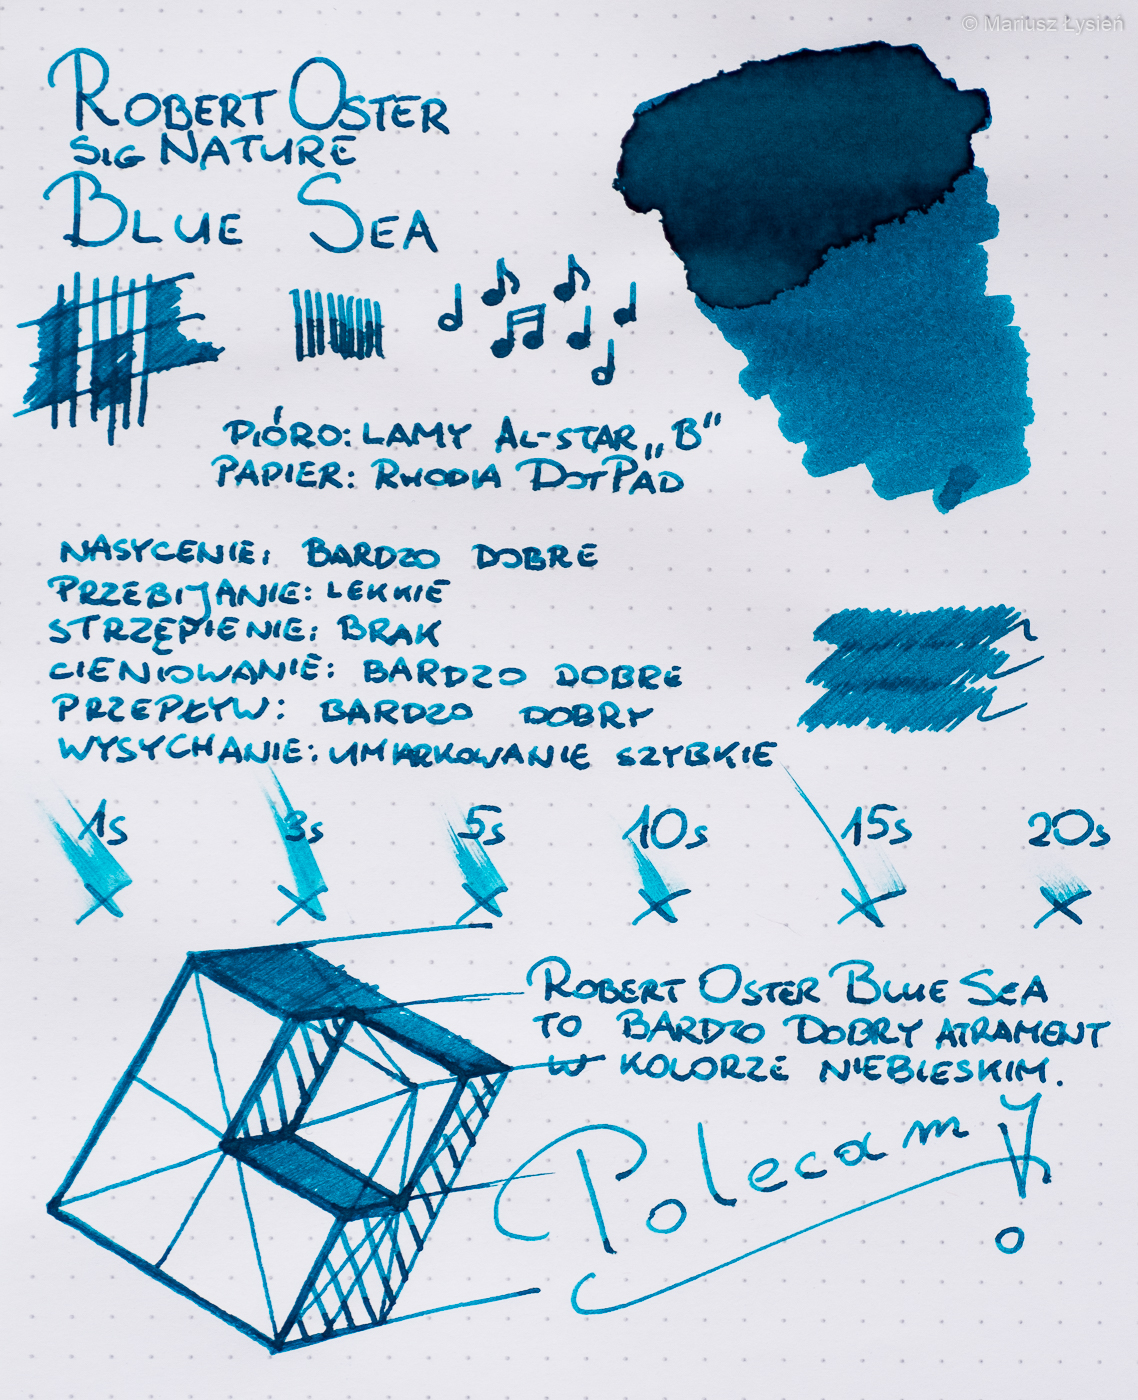 © Mariusz Łysień
Robert Oster
SigNature
Blue Sea
Pióro: LAMY Al-star „B”
Papier: Rhodia DotPad
Nasycenie: bardzo dobre
Przebijanie: lekkie
Strzępienie: brak
Cieniowanie: bardzo dobre
Przepływ: bardzo dobry
Wysychanie: umiarkowanie szybkie
1s 3s 5s 10s 15s 20s
Robert Oster Blue Sea
to bardzo dobry atrament
w kolorze niebieskim.
Polecam!